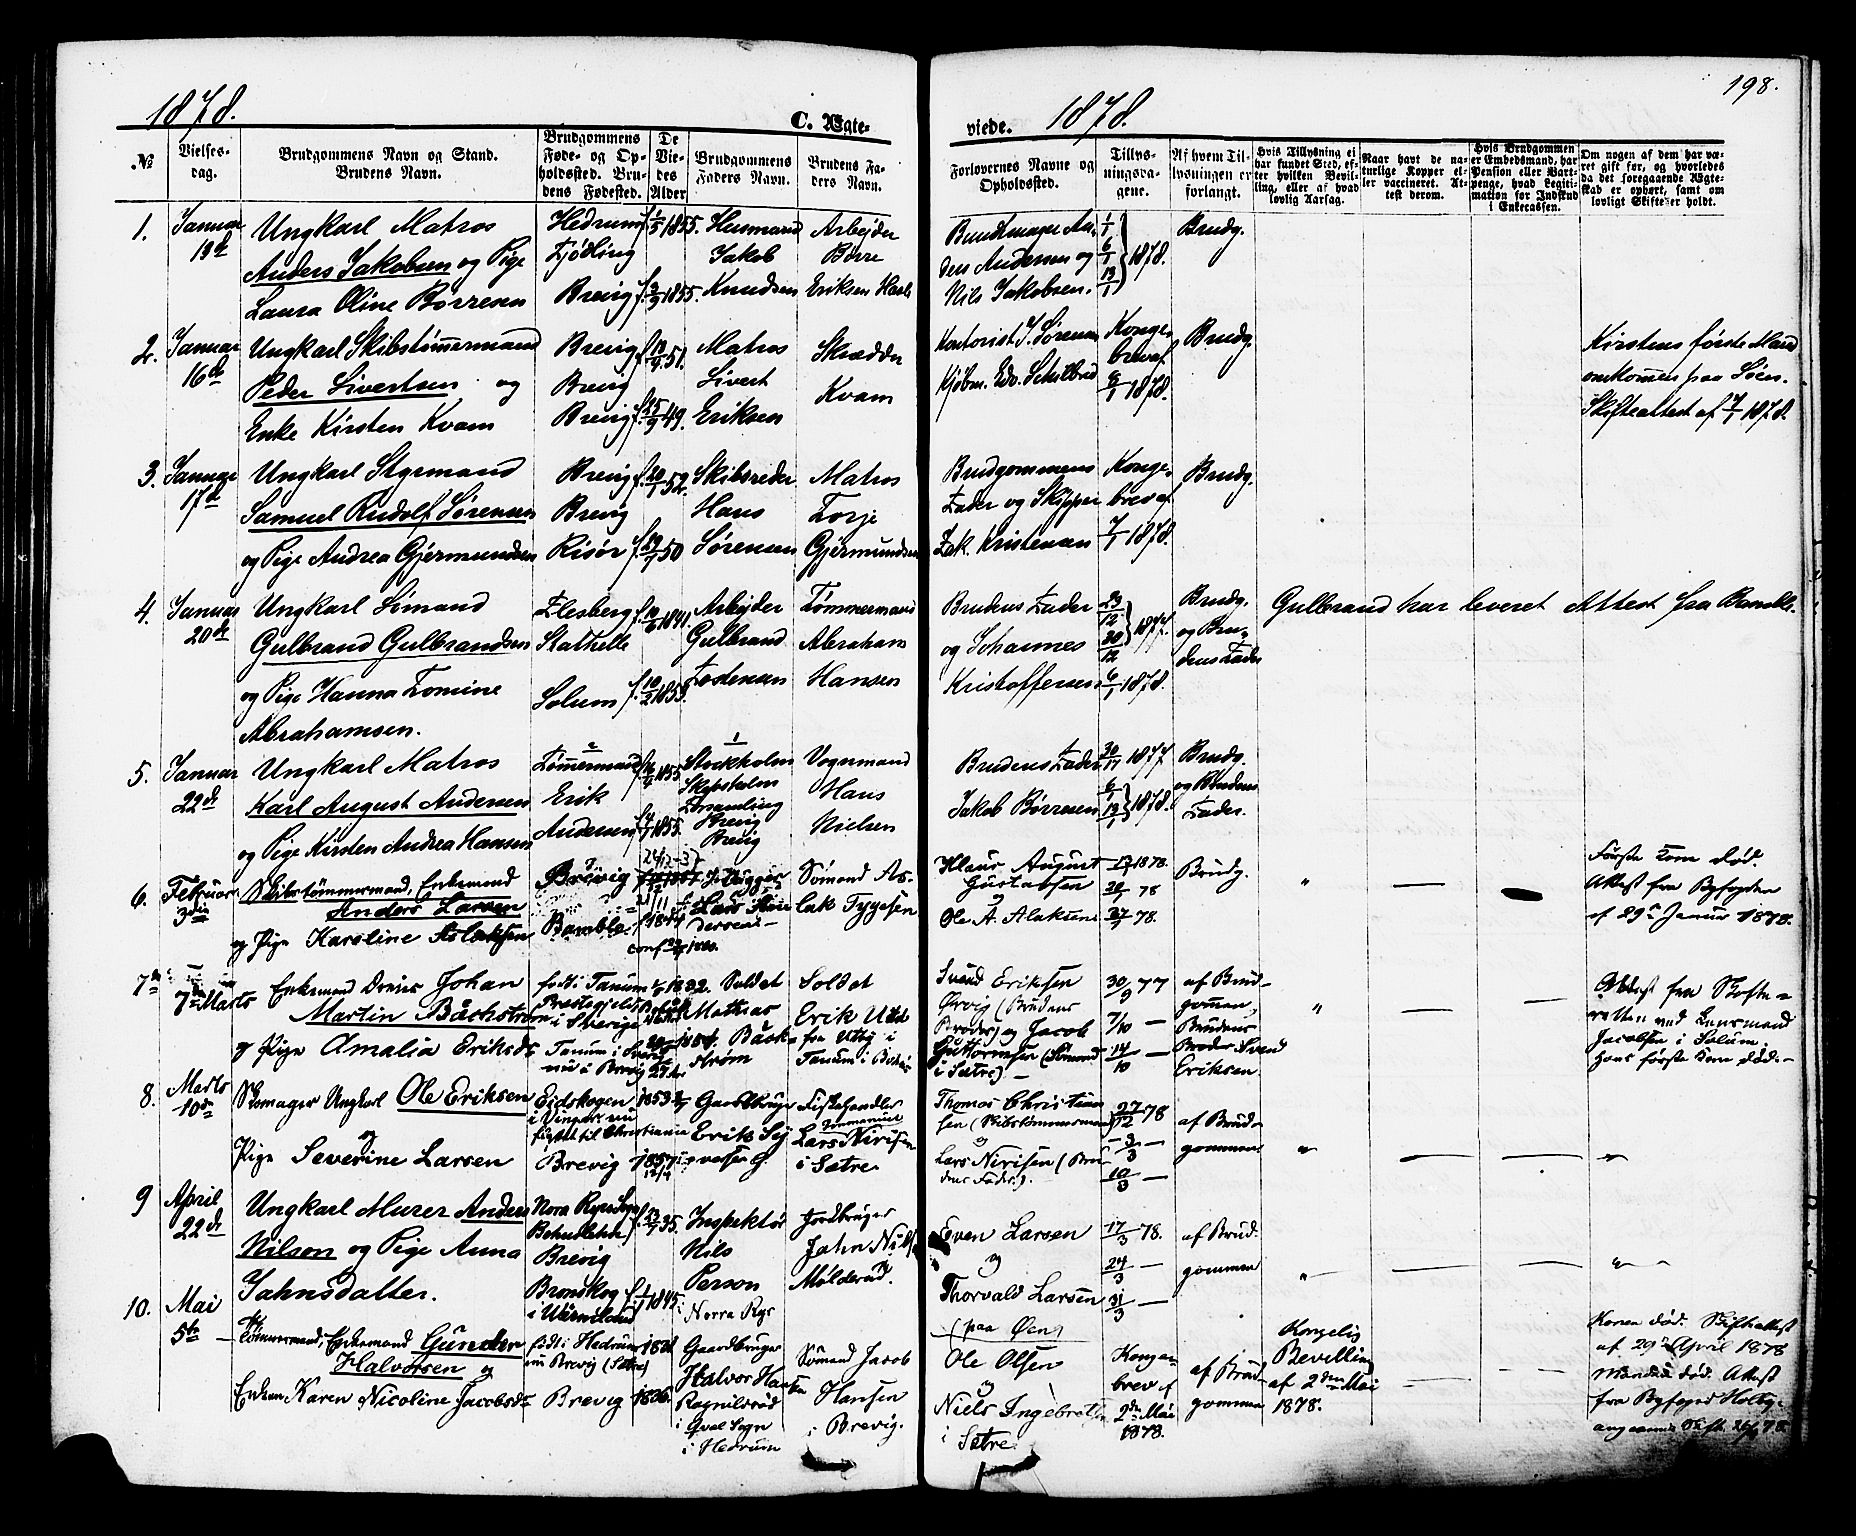 198.
1878.
C. Ægte-
viede.
1878.
№
Vielses-
dag.
Brudgommens Navn og Stand.
Brudens Navn.
Brudgommens
Føde- og Op-
holdssted. Bru-
dens Fødested.
De
Vie-
des
Alder
Brudgommens
Faders Navn.
Brudens Fa-
ders Navn.
Forlovernes Navne og
Opholdssted.
Tillys-
ningsda-
gene.
Af hvem Til-
lysningen er
forlangt.
Hvis Tillysning ei
har fundet Sted, ef-
ter hvilken Bevil-
ling, eller af hvad
lovlig Aarsag.
Naar havt de na-
turlige Kopper el-
ler vaccineret. At-
test derom.
Hvis Brudgommen
er Embedsmand, har
Pension eller Vart-
penge, hvad Legiti-
mation for Indskud
i Enkecassen.
Om nogen af dem har væ-
ret gift før, og hvorledes
da det foregaaende Ægte-
skab er ophørt, samt om
lovligt Skifte er holdt.
1.
Januar
13de
Ungkarl Matros
Anders Jakobsen og Pige
Laura Oline Børresen
Hedrum
Fjødling
Brevig
f. 1/5 1855.
f. 3/9 1855.
Husmand
Jakob
Knudsen
Arbejder
Børre
Eriksen
Buntmager An-
ders Andersen og
Nils Jakobsen.
1/1
6/1
13/1
1878.
Brudg.
2.
Januar
16de
Ungkarl Skibstømmermand
Peder Sivertsen og
Enke Kirsten Kvam
Brevig
Brevig
Brevig
51.
f. 25/9 49.
Matros
Sivert
Eriksen
Skrædder
Kvam
Kontorist J. Sørensen
Kjøbm. Edv. Schilbred
Konge-
brev af
8/1 1878.
Brudg.
Kirstens første Mand
omkommen paa Søen.
Skifteattest af 7/1 1878.
3.
Januar
17de
Ungkarl Styrmand
Samuel Rudolf Sørensen
og Pige Andrea Gjermundsen
Brevig
Brevig
Risør
f. 20/1 52.
f. 19/7 50
Skibsreder
Hans
Sørensen
Matros
Torje
Gjermundsen
Brudgommens
Fader og Skipper
Zak. Kristensen
Konge-
brev af
7/1 1878.
Brudg.
4.
Januar
20de
Ungkarl Sømand
Gulbrand Gulbrandsen
og Pige Hanna Tomine
Abrahamsen.
Flesberg
Stathelle
Solum
1841.
f. 10/2 1855.
Arbejder
Gulbrand
Tostensen
Tømmermand
Abraham
Hansen
Brudens Fader
og Johannes
Kristoffersen
23/12
30/12
1877.
6/1 1878.
Brudg.
og Bru-
dens Fader
Gulbrand har leveret Attest fra Bamble.
5.
Januar
22de
Ungkarl Matros
Karl August Andersen
og Pige Kirsten Andrea Hansen
2
Tømmermand
Erik
Andersen
1855
1855.
1
Stockholm
Skepsholm
Forsamling
Brevig
Brevig
Vognmand
Hans
Nielsen
Brudens Fader
Jakob Børresen
30/12 1877
6/1
13/1
1878.
Brudg.
og Brudens
Fader.
6.
Februar
3die
Skibstømmermand, Enkemand
Anders Larsen
og Pige Karoline Aslaksen
Brevig
Bamble
1849
Lars
Sømand As-
lak Tygesen
Klaus August
Gustavsen
og
Ole A. Alaksen
13/1 1878.
20/1 78
27/1 78.
Brudg.
"
Første Kone død.
Attest fra Byfogden
af 29de Januar 1878.
7de
7de Marts
Enkemand Johan
Martin Bäckström
og Pige Amalia Eriksd.
født i Tanum
Prestegjeld
i Sverige
Tanum i Sverig
nu i Brevig
1832.
Soldat
Mathias
Bäck-
strøm
Soldat
Erik
fra Utby i
Tanum i
Svend Eriksen
Ørvig (Brudens
Broder) og Jacob
Guttormsen (Sømand
i Sætre) –
30/9 77
7/10 –
14/10 –
af Brud-
gommen,
Brudens
Broder Svend
Eriksen.
"
Attest fra Skifte-
retten ved Lensmand
Jacobsen i Solum.
Hans første Kone døde. –
8.
Marts
10de
Skomager Ungkarl Ole Eriksen
og
Pige Severine Larsen
Eidskogen
i Vinger nu
flyttet til Christiania
Brevig
1853
1857
12/4
Gaardbruger
Erik
Fiskehandler
Lars Nirisen
i Sætre
Thomas Christian-
sen (Skibstømmermand)
og
Lars Nirisen (Bru-
dens Fader).
78
3/3 –
10/3 –
af Brud-
gommen
"
"
9
April
22de
Ungkarl Murer Anders
Nilson og Pige Anna
Jahnsdatter.
Nora
Brevig
f. 35.
1845.
Inspektør
Nils
Person
i Norra Ryr
Jordbruger
Jahn
Mølderud.
Even Larsen
og
Thorvald Larsen
(paa Øen)
17/3 78.
24/3 –
31/3 –
af Brud-
gommen
"
"
10.
Mai
5te
Tømmermand, Enkemand Gunder
Halvorsen og
Enken Karen Nicoline Jacobsd.
født i Hedrum
nu Brevig (Sætre)
Brevig
1836.
Gaardbruger
Halvor Hansen
Ragnilsrød
i Qvel Sogn
i Hedrum
Sømand Jacob
Hansen
i Brevig.
Ole Olsen
og
Niels Ingebretsen
i Sætre
Konge-
brev af
2den Mai
1878.
af Brud-
gommen
Kongelig
Bevilling
af 2den Mai
1878.
Konen død. Skifteattest
af 29de April 1878
Manden død. Attest
fra Byfoged